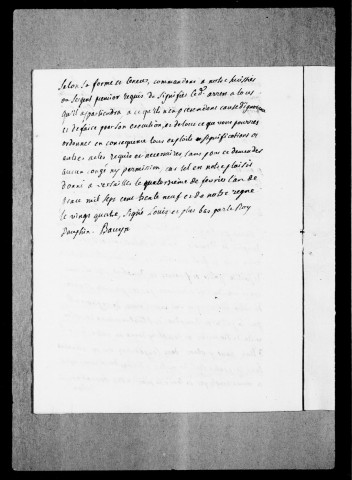 Selon sa forme et teneur, commandons a notre huissier
ou sergent premier requis de signifier led. arrest a tous
qu'il appartiendra a ce qu'ils n'en pretendent cause d'ignorance
et de faire pour son execution, et de tout ce que vous pourrez
ordonner en consequence tous exploits significations et
autres actes requis et necessaires sans pour ce demander
aucun congé ny permission, car tel est notre plaisir
donné a versailles le quatorzième de fevrier l'an de
grace mil sept cent trente neuf et de notre regne
le vingt quatre, signé Louis et plus bas par le Roy
Dauphin. Bauyn